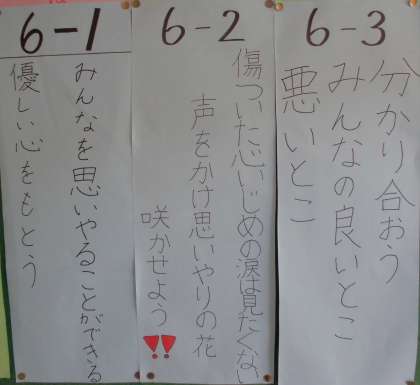 6-1
みんなを思いやることができる
優しい心をもとう
6-2
傷ついた心いじめの涙は見たくない
声をかけ思いやりの花
咲かせよう!!
6-3
分かり合おう
みんなの良いとこ
悪いとこ